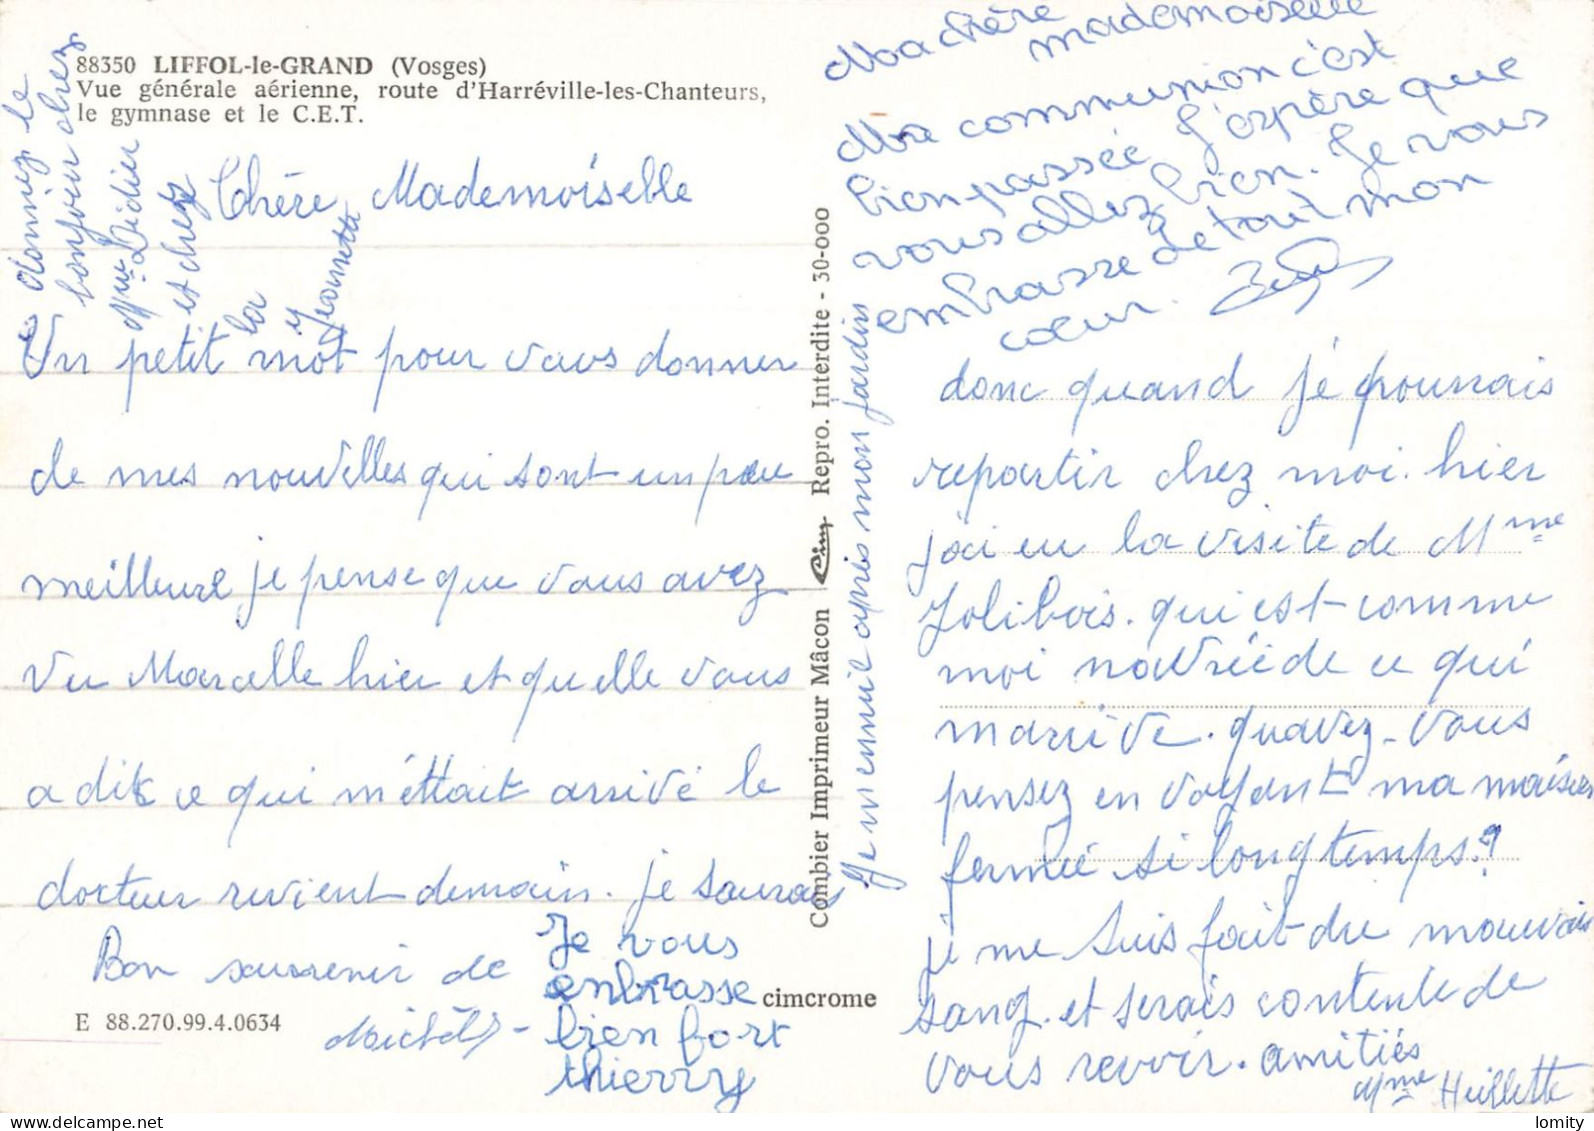 88350 LIFFOL-le-GRAND (Vosges)
Vue générale aérienne, route d'Harréville-les-Chanteurs,
le gymnase et le C.E.T.
donnez le
bonjour chez
Mme Didier
et chez
la
y
Jeannette
Chère Mademoiselle
Un petit mot pour vous donner
de mes nouvelles qui sont un peu
meilleure je pense que vous avez
vu Marcelle hier et quelle vous
a dit ce qui m'éttait arrivé le
docteur revient demain. je saurais
Bon souvenir de
Michèle -
Je vous
enbrasse
bien fort
thierry
E 88.270.99.4.0634
cimcrome
Combier Imprimeur Mâcon Cim Repro. Interdite - 30-000
Je m'ennuie après mon jardin
Ma chère
mademoiselle
Ma communion c'est
bien passée J'espère que
vous allez bien. Je vous
embrasse de tout mon
coeur.
donc quand je pourrais
repartir chez moi. hier
j'ai eu la visite de Mme
Jolibois. qui est comme
moi navrée de ce qui
m'arrive. qu'avez-vous
pensez en voyant ma maison
fermée si longtemps?
je me suis fait du mauvais
sang. et serais contente de
vous revoir. amitiés
Mme Huillette
lomity